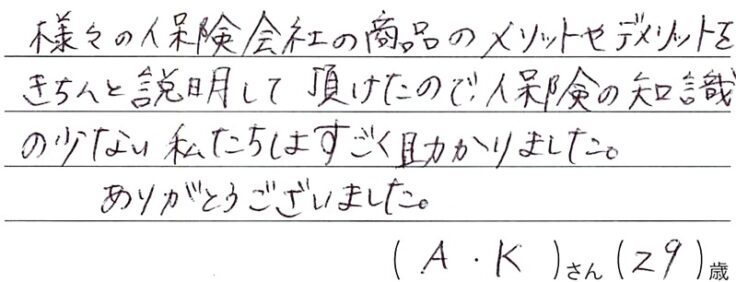 様々の保険会社の商品のメリットやデメリットを
きちんと説明して頂けたので、保険の知識
の少ない私たちはすごく助かりました。
ありがとうございました。
(A・K)さん(29)歳